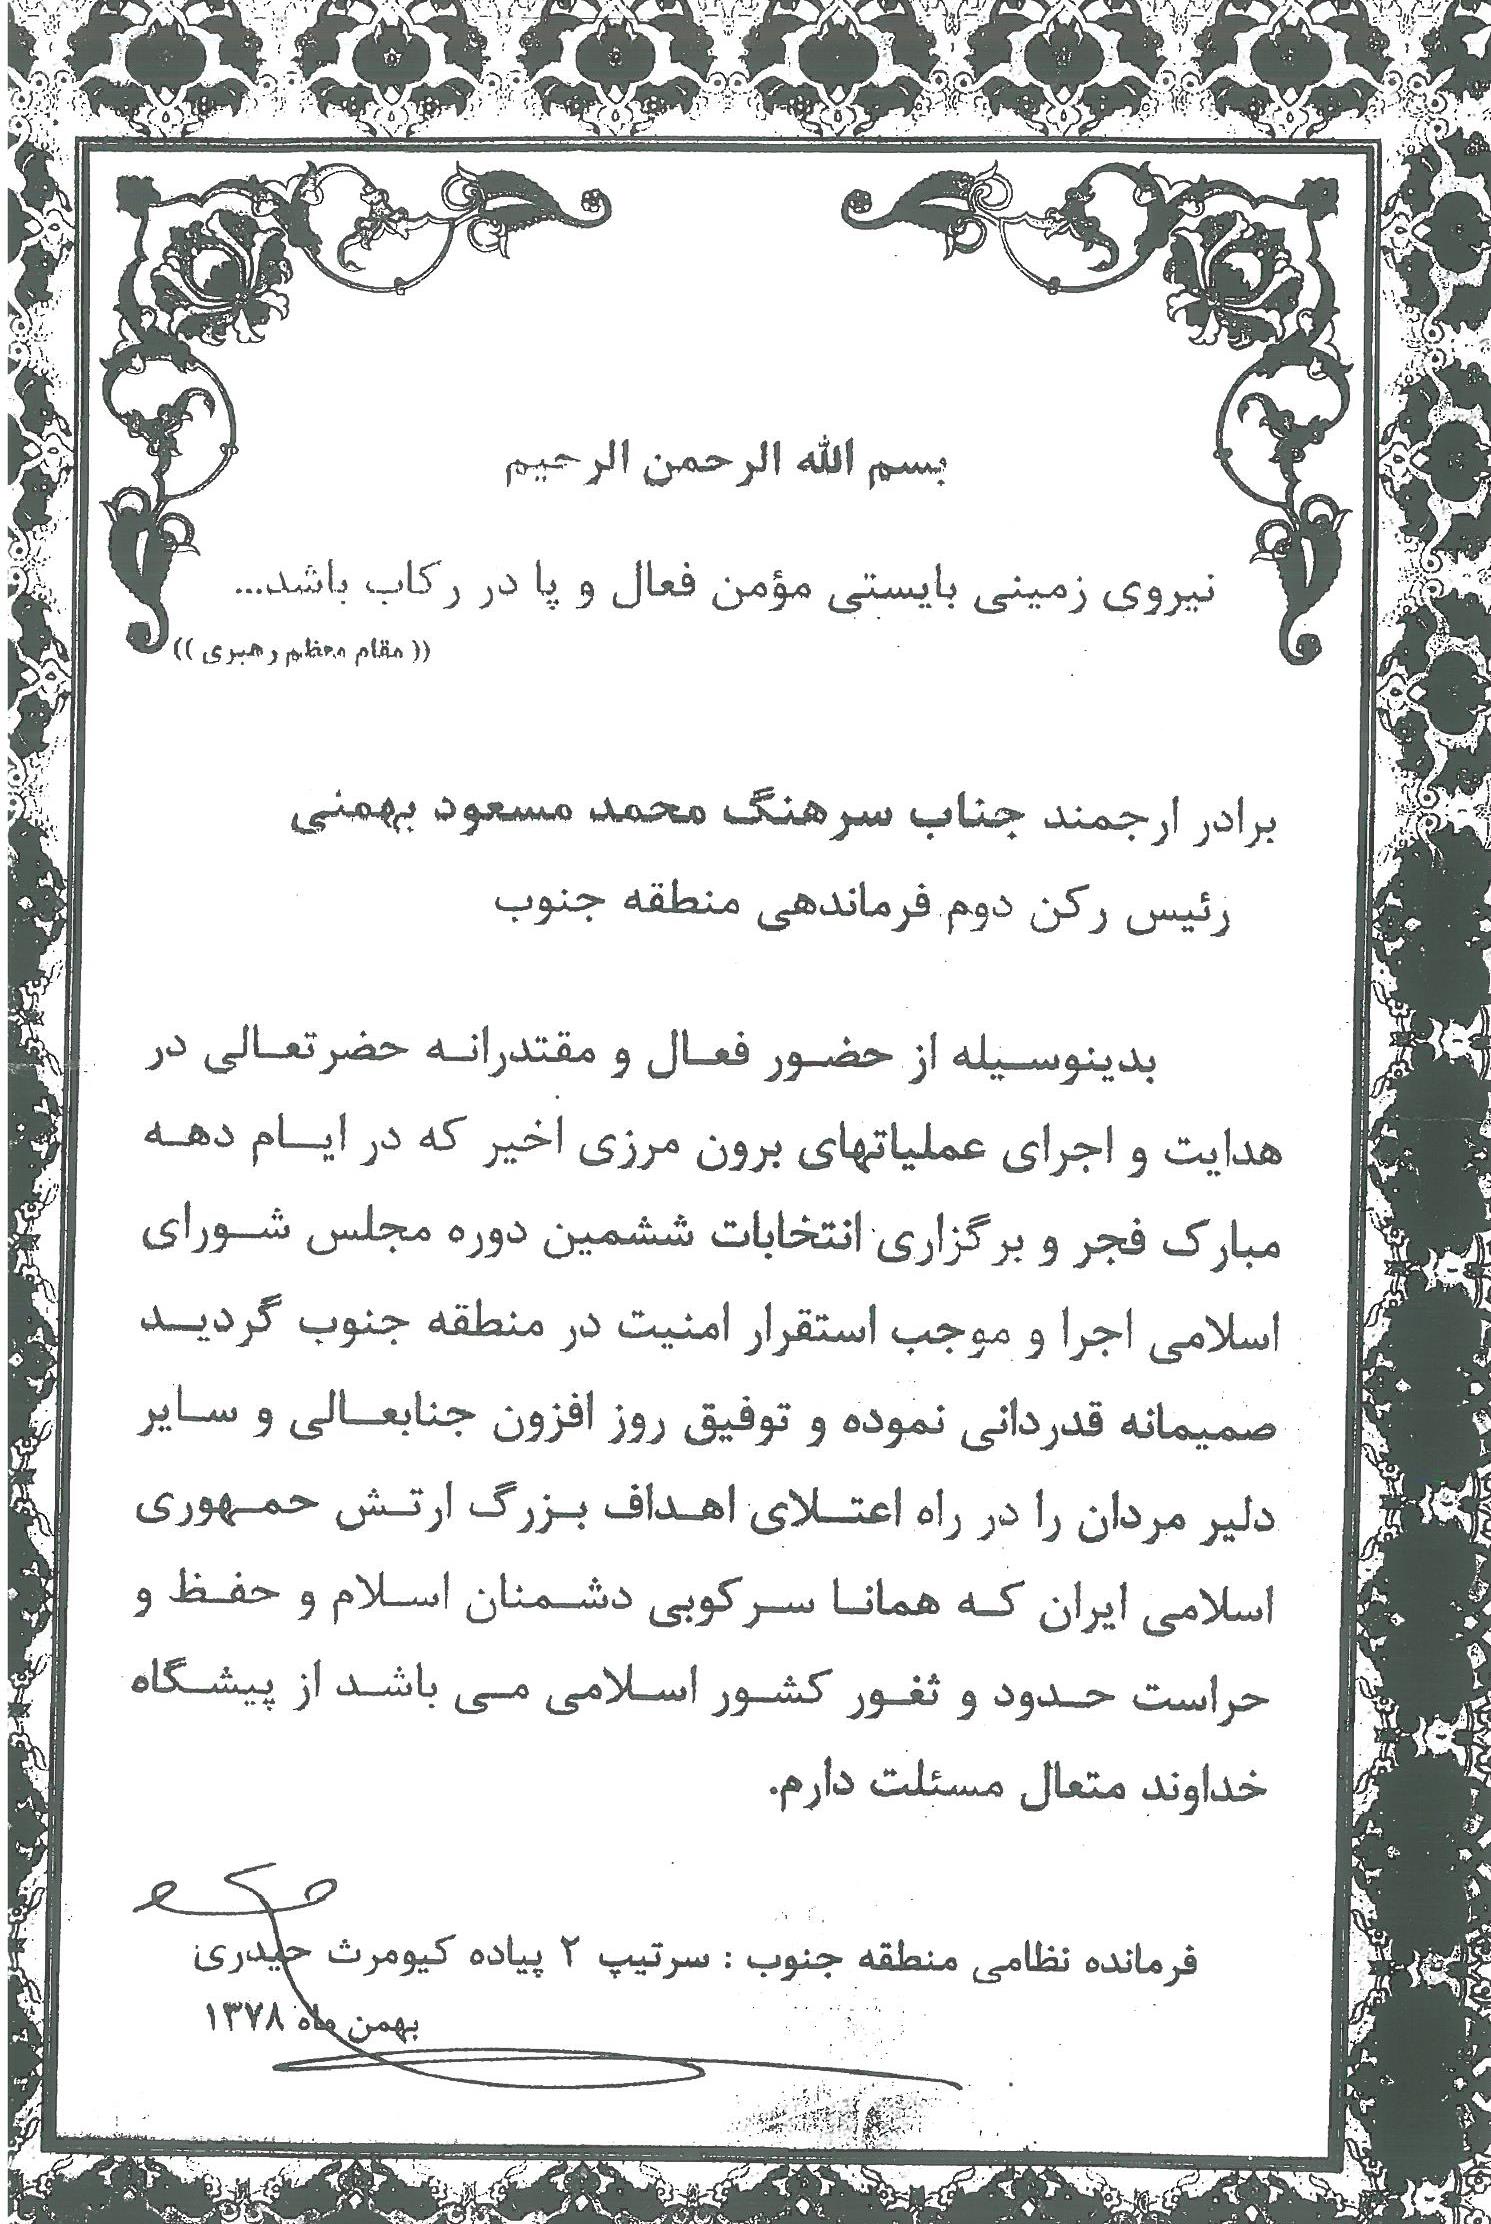 بسم الله الرحمن الرحیم
نیروی زمینی بایستی مؤمن فعال و پا در رکاب باشد...
(( مقام معظم رهبری ))
برادر ارجمند جناب سرهنگ محمد مسعود بهمنی
رئیس رکن دوم فرماندهی منطقه جنوب
بدینوسیله از حضور فعال و مقتدرانه حضرتعالی در
هدایت و اجرای عملیاتهای برون مرزی اخیر که در ایام دهه
مبارک فجر و برگزاری انتخابات ششمین دوره مجلس شورای
اسلامی اجرا و موجب استقرار امنیت در منطقه جنوب گردید
صمیمانه قدردانی نموده و توفیق روز افزون جنابعالی و سایر
دلیر مردان را در راه اعتلای اهداف بزرگ ارتش جمهوری
اسلامی ایران که همانا سرکوبی دشمنان اسلام و حفظ و
حراست حدود و ثغور کشور اسلامی می باشد از پیشگاه
خداوند متعال مسئلت دارم.
فرمانده نظامی منطقه جنوب : سرتیپ ۲ پیاده کیومرث حیدری
بهمن ماه ۱۳۷۸